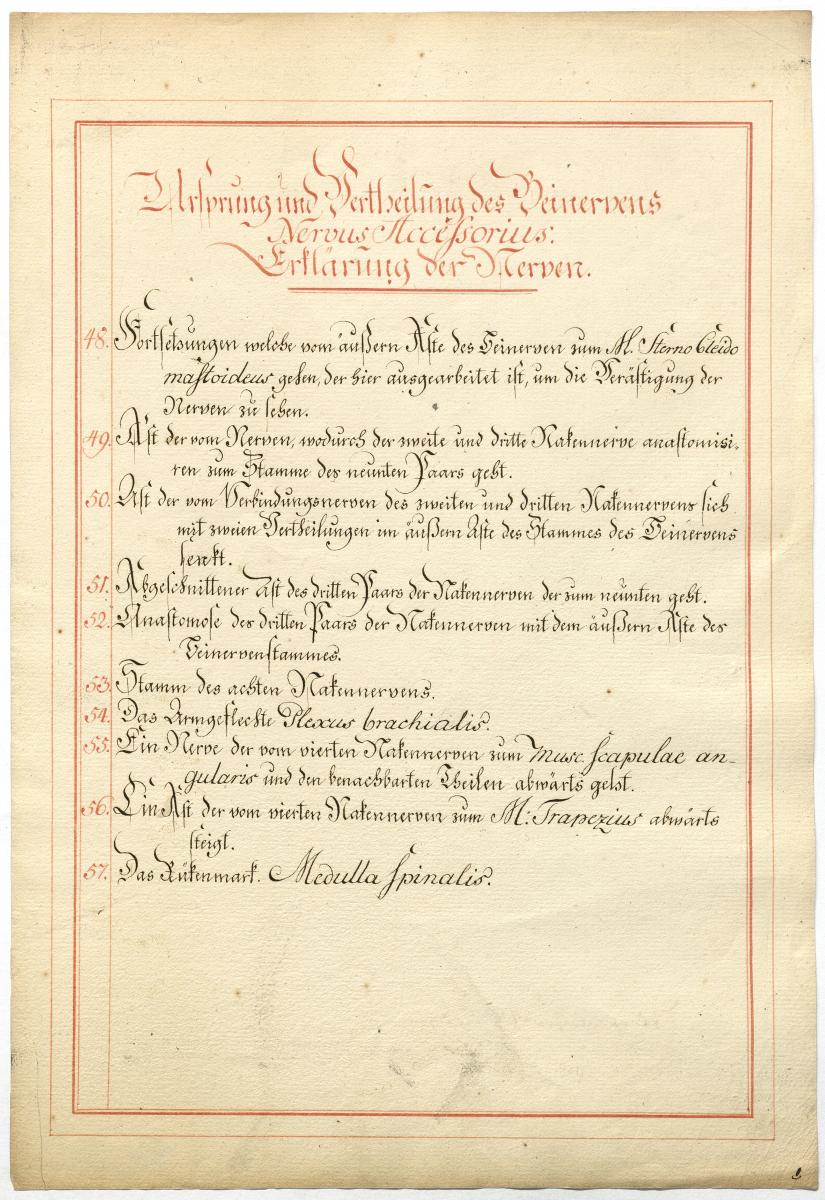 Ursprung und Vertheilung des Beinervens
Nervus Accessorius.
Erklärung der Nerven.
48. Fortsetzungen welche vom äußern Aste des Beinerven zum M. Sterno Cleido
mastoideus gehen, der hier ausgearbeitet ist, um die Verästigung der
Nerven zu sehen.
49. Ast der vom Nerven, wodurch der zweite und dritte Nakennerve anastomisi-
ren zum Stamme des neunten Paars geht.
50. Ast der vom Verbindungsnerven des zweiten und dritten Nakennervens sich
mit zweien Vertheilungen im äußern Aste des Stammes des Beinervens
senkt.
51. Abgeschnittener Ast des dritten Paars der Nakennerven der zum neunten geht.
52. Anastomose des dritten Paars der Nakennerven mit dem äußern Aste des
Beinervenstammes.
53. Stamm des achten Nakennervens.
54. Das Armgeflechte Plexus brachialis.
55. Ein Nerve der vom vierten Nakennerven zum Musc. scapulae an-
gularis und den benachbarten Theilen abwärts geht.
56. Ein Ast der vom vierten Nakennerven zum M: Trapezius abwärts
steigt.
57. Das Rükenmark. Medulla spinalis.